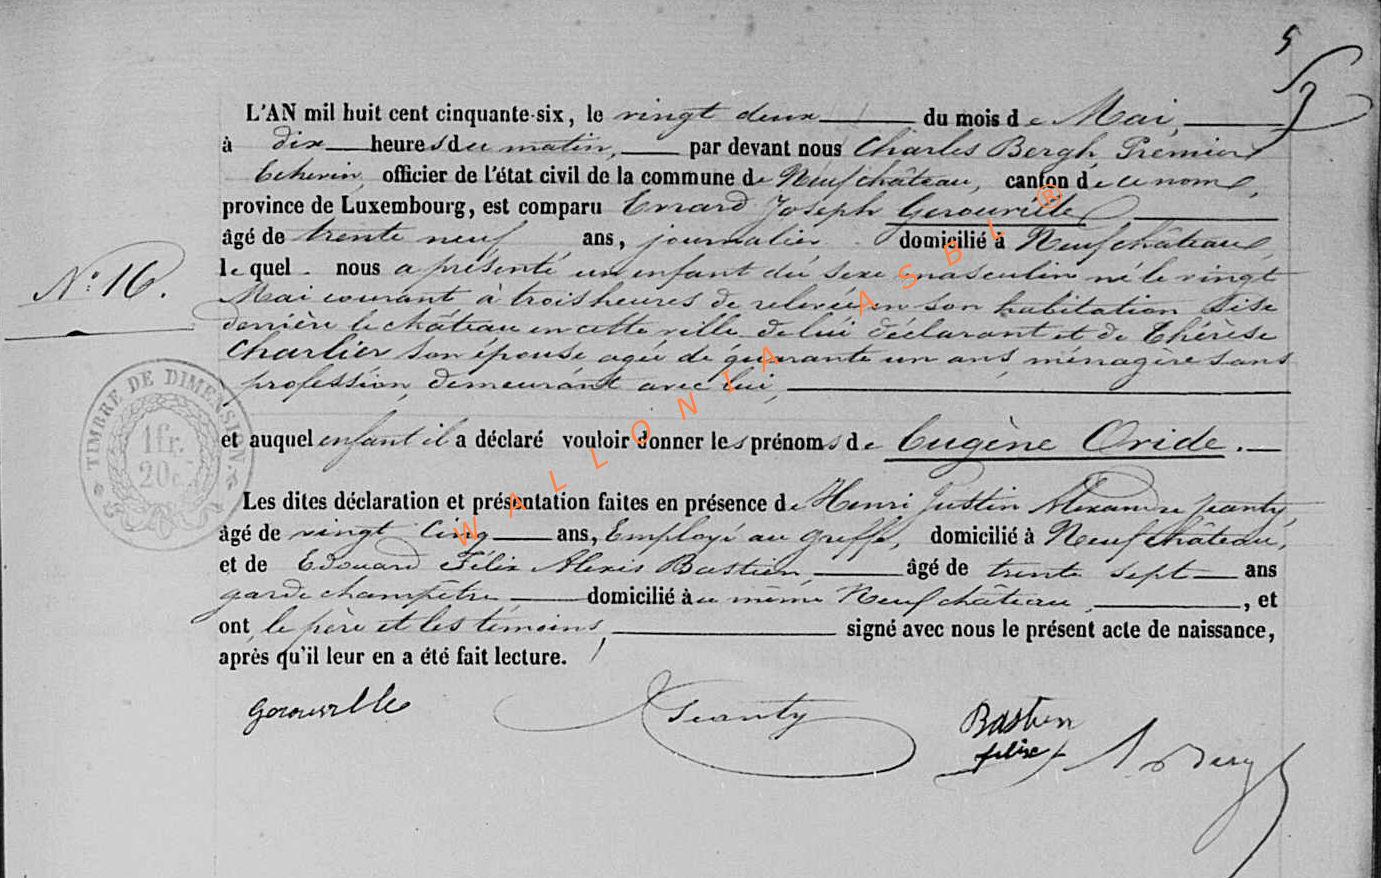 5
L'AN mil huit cent cinquante-six, le vingt deux du mois de Mai,
à dix heures du matin, par devant nous Charles Bergh, Premier
Echevin, officier de l'état civil de la commune de Neufchâteau, canton de ce nom,
province de Luxembourg, est comparu Evrard Joseph Gerouville
âgé de trente neuf ans, journalier domicilié à Neufchâteau,
N° 16.
lequel nous a présenté un enfant du sexe masculin né le vingt
Mai courant à trois heures de relevée en son habitation sise
derrière le château en cette ville de lui déclarant et de Thérèse
Charlier son épouse agée de quarante un ans, ménagère sans
profession, demeurant avec lui,
TIMBRE DE DIMENSION.
1fr.
20c.
et auquel enfant il a déclaré vouloir donner les prénoms de Eugène Oride.
Les dites déclaration et présentation faites en présence de Henri Justin Alexandre Jeanty,
âgé de vingt cinq ans, Employé au greffe, domicilié à Neufchâteau,
et de Edouard Félix Alexis Bastien, âgé de trente sept ans
garde champêtre domicilié au même Neufchâteau, et
ont, le père et les témoins, signé avec nous le présent acte de naissance,
après qu'il leur en a été fait lecture.
Gerouville Jeanty Bastien
felix Bergh
WALLONIA ASBL ®